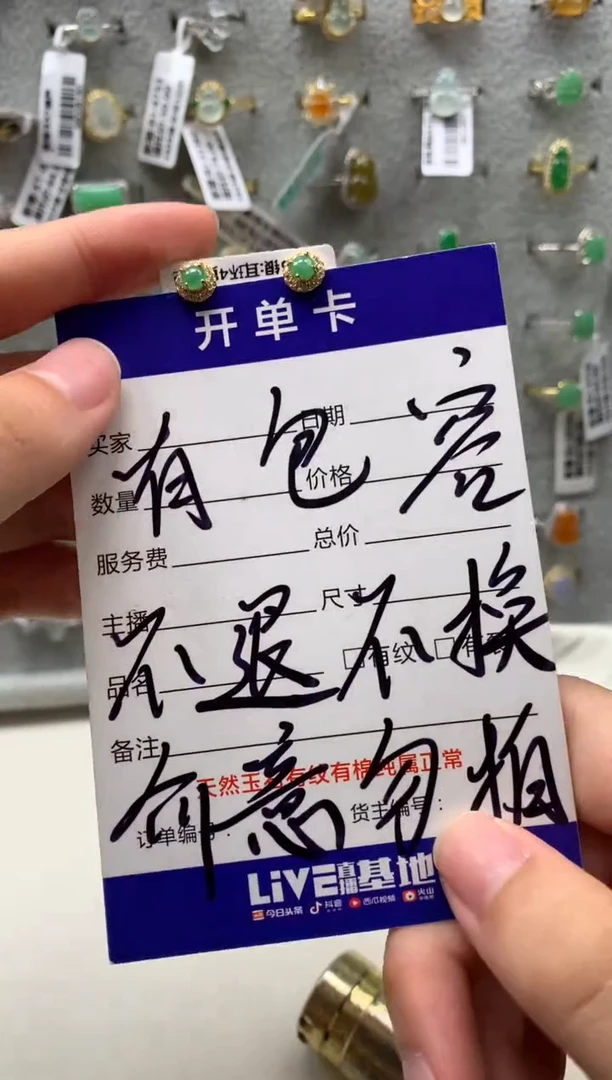 开单卡
买家 日期
数量 价格
有包容
服务费 总价
主播 尺寸
不退不换
品名 □有纹 □有
备注
天然玉石有纹有棉纯属正常
介意勿拍
订单编号： 货主编号：
LiVE直播基地
今日头条 抖音 西瓜视频 火山